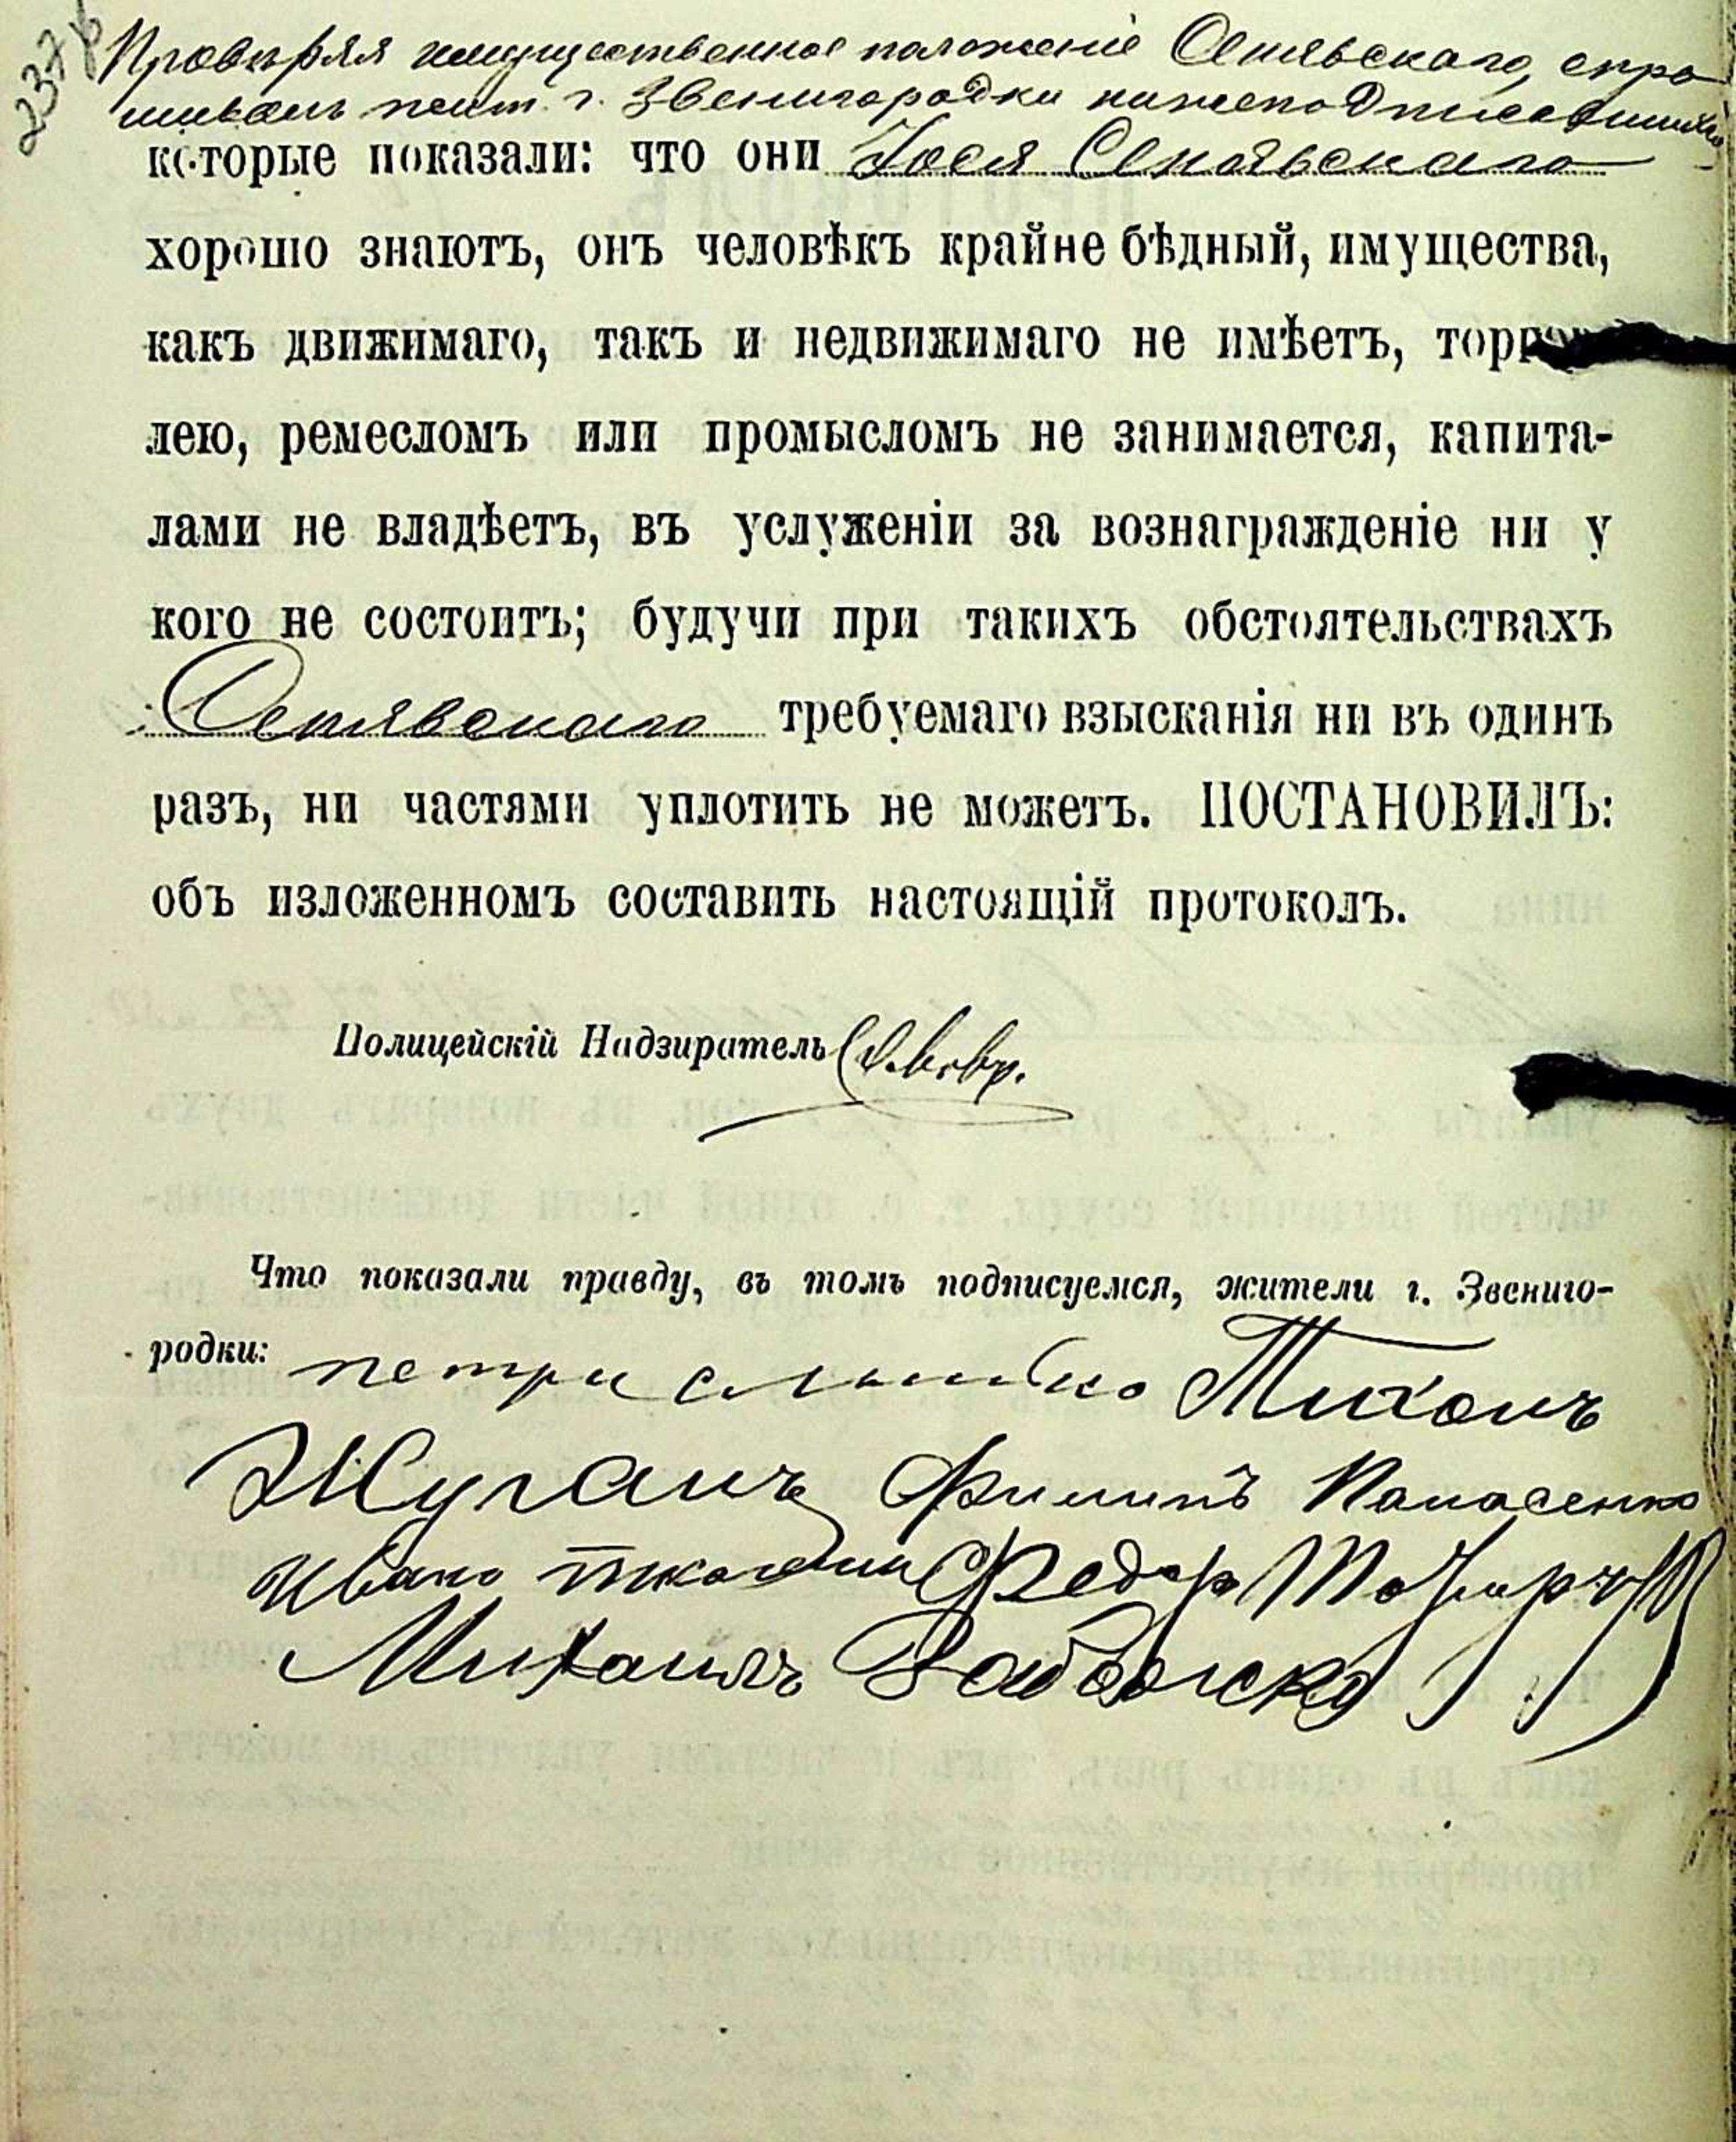 237 об
Провѣряя имущественное положеніе Сенявскаго, спра
шивалъ жит. г. Звенигородки нижеподписавшихся
которые показали: что они Іося Сенявскаго
хорошо знаютъ, онъ человѣкъ крайне бѣдный, имущества,
какъ движимаго, такъ и недвижимаго не имѣетъ, торгов
лею, ремесломъ или промысломъ не занимается, капита-
лами не владѣетъ, въ услуженіи за вознагражденіе ни у
кого не состоитъ; будучи при такихъ обстоятельствахъ
Сенявскаго требуемаго взысканія ни въ одинъ
разъ, ни частями уплотить не можетъ. ПОСТАНОВИЛЪ:
объ изложенномъ составить настоящій протоколъ.
Полицейскій Надзиратель
Что показали правду, въ томъ подписуемся, жители г. Звениго-
родки: петри Тихонъ
Жуганъ Филипъ Панасенко
Ивано Федор
Михаилъ